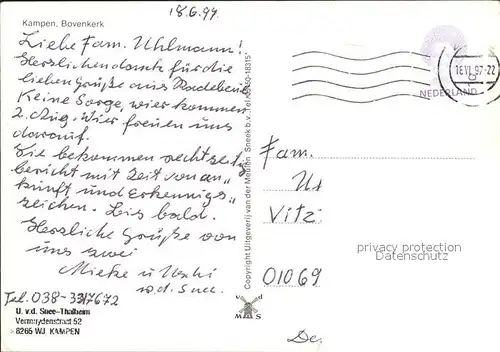 18.6.97
Kampen, Bovenkerk
Liebe Fam. Uhlmann!
Herzlichen dank für die
lieben Grüße aus Radebeul
Keine Sorge, wier kommen
2. Aug. Wier freuen uns
darauf.
Sie bekommen rechtzeitig
bericht mit Zeit von an-
kunft und Erkennigs-
zeichen. Bis bald.
Herzliche Grüße von
uns zwei
Mieke u
v.d. Snee.
Tel. 038-3317672
U. v.d. Snee-Thalheim
Vermeydenstraat 52
8265 WJ KAMPEN
Copyright Uitgeverij van der Meulen Sneek b.v. Tel.
MS
18.VI.97-22
NEDERLAND
Fam.
Vitz
privacy protection
Datenschutz
01069